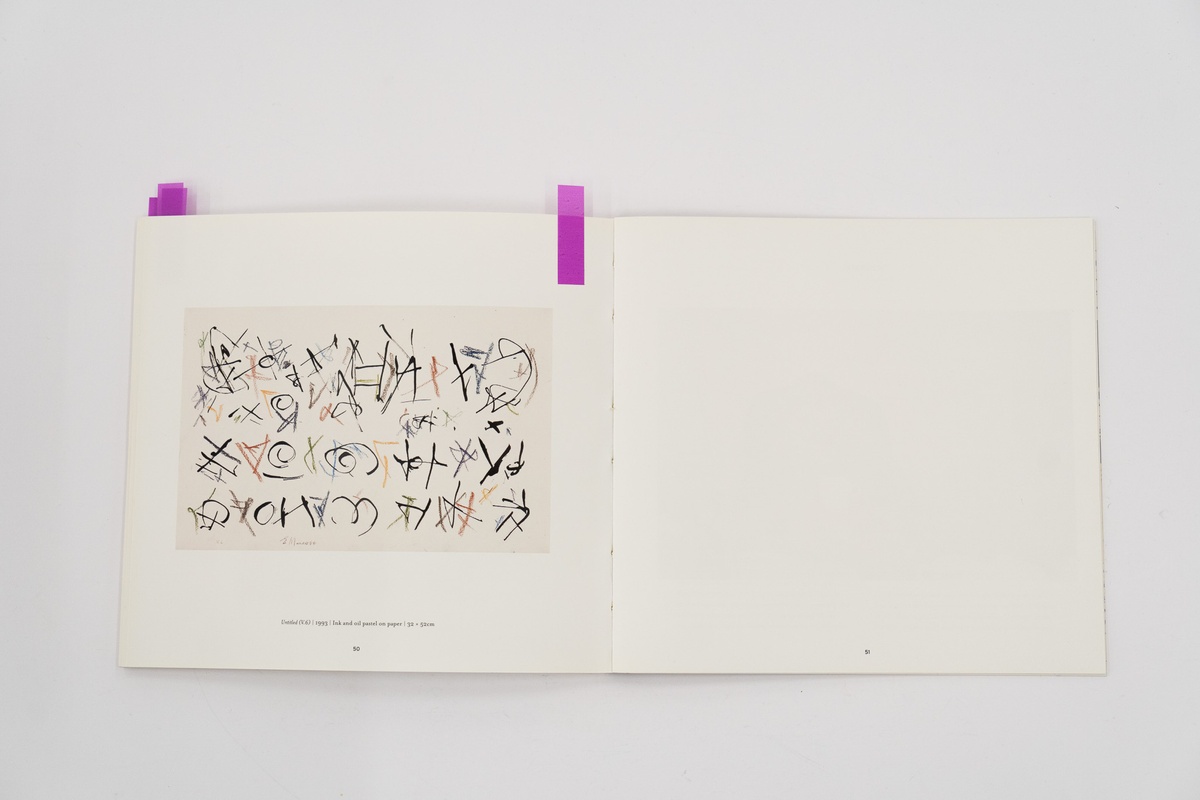 Untitled (V.6) | 1993 | Ink and oil pastel on paper | 32 × 52cm
50
51